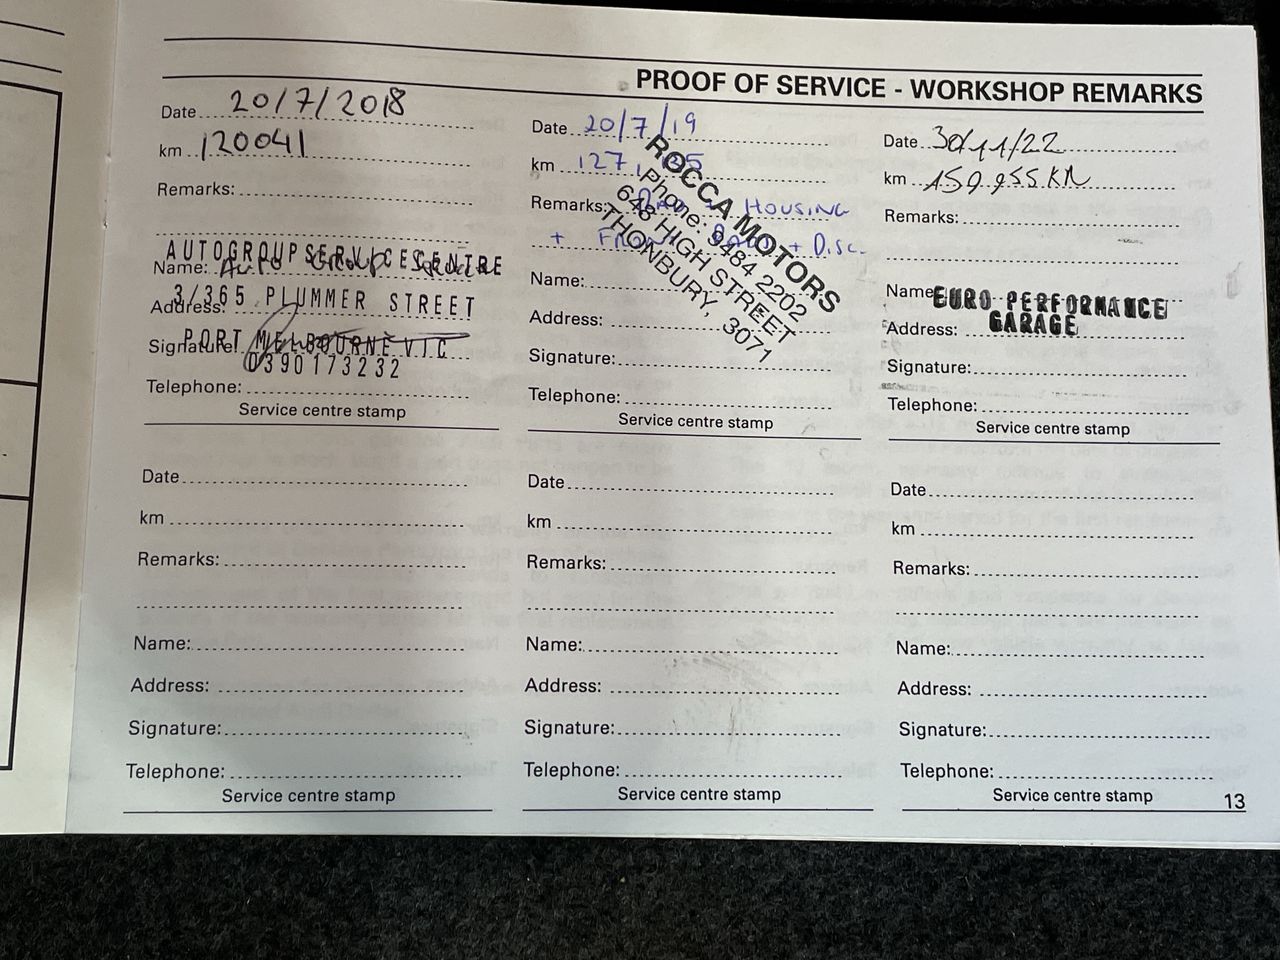 PROOF OF SERVICE - WORKSHOP REMARKS
Date 20/7/2018
km 120041
Remarks:
AUTOGROUPSERVICECENTRE
Name: Auto Group Service
3/365 PLUMMER STREET
Address:
PORT MELBOURNE VIC
Signature:
0390173232
Telephone:
Service centre stamp
Date 20/7/19
km 127,
Remarks: HOUSING
+ + Disc
ROCCA MOTORS
Phone: 9484 2202
648 HIGH STREET
THONBURY, 3071
Name:
Address:
Signature:
Telephone:
Service centre stamp
Date 30/11/22
km 159.955 KM
Remarks:
Name:
EURO PERFORMANCE
GARAGE
Address:
Signature:
Telephone:
Service centre stamp
Date
km
Remarks:
Name:
Address:
Signature:
Telephone:
Service centre stamp
Date
km
Remarks:
Name:
Address:
Signature:
Telephone:
Service centre stamp
Date
km
Remarks:
Name:
Address:
Signature:
Telephone:
Service centre stamp
13